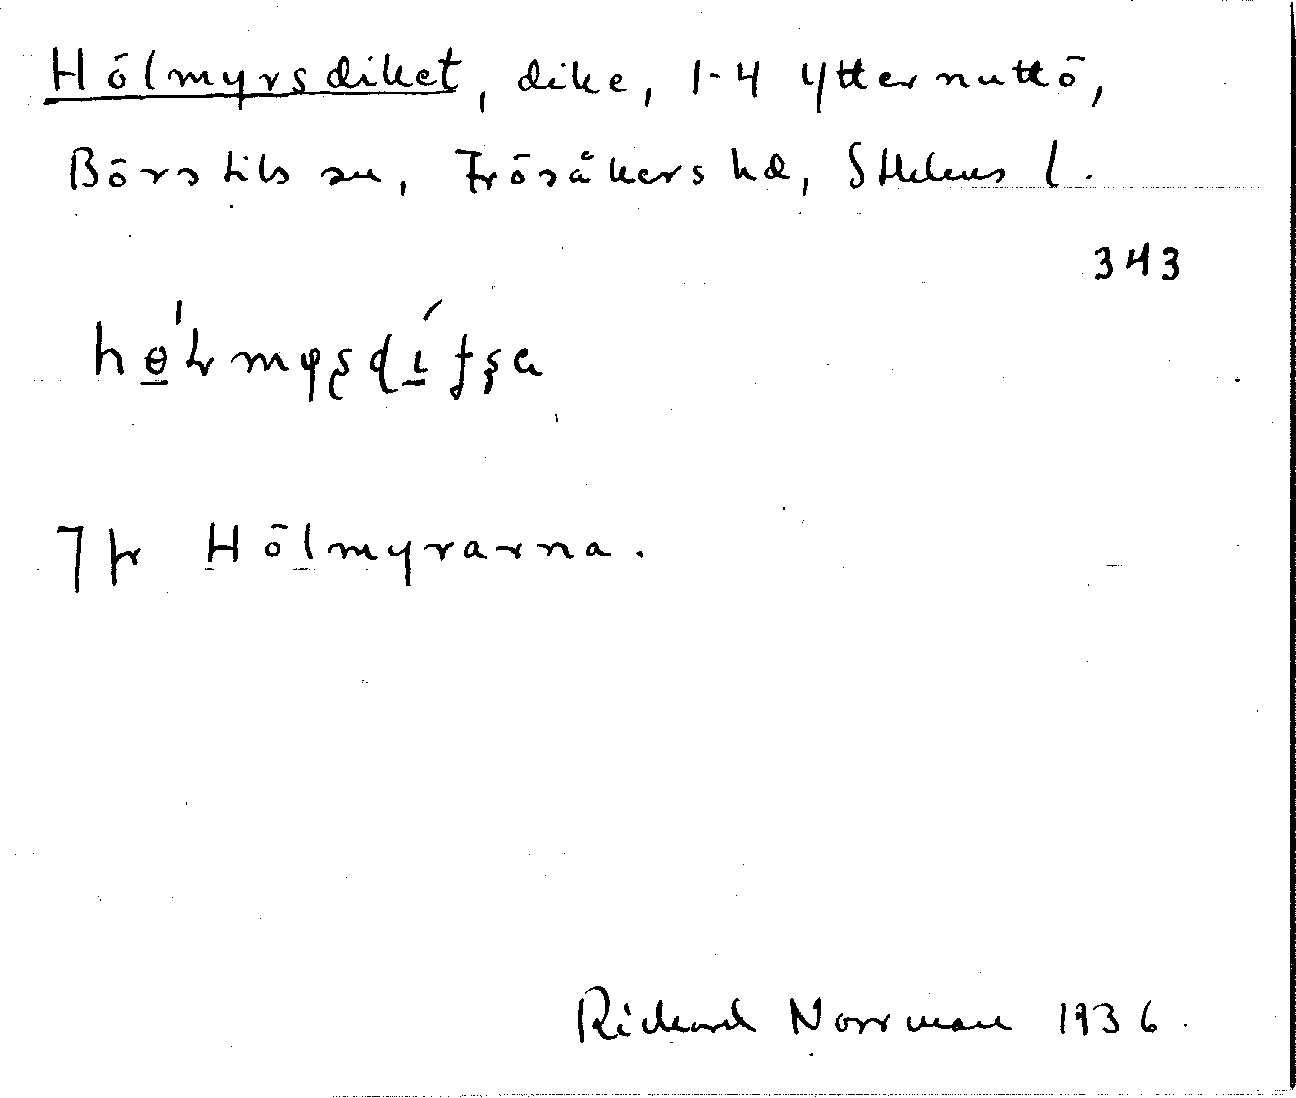 Hölmyrsdiket, dike, 1-4 Ytternuttö,
Börstils sn, Frösåkers hd, Sthlms l.
343
Jfr Hölmyrarna.
Rickard Norrman 1936.